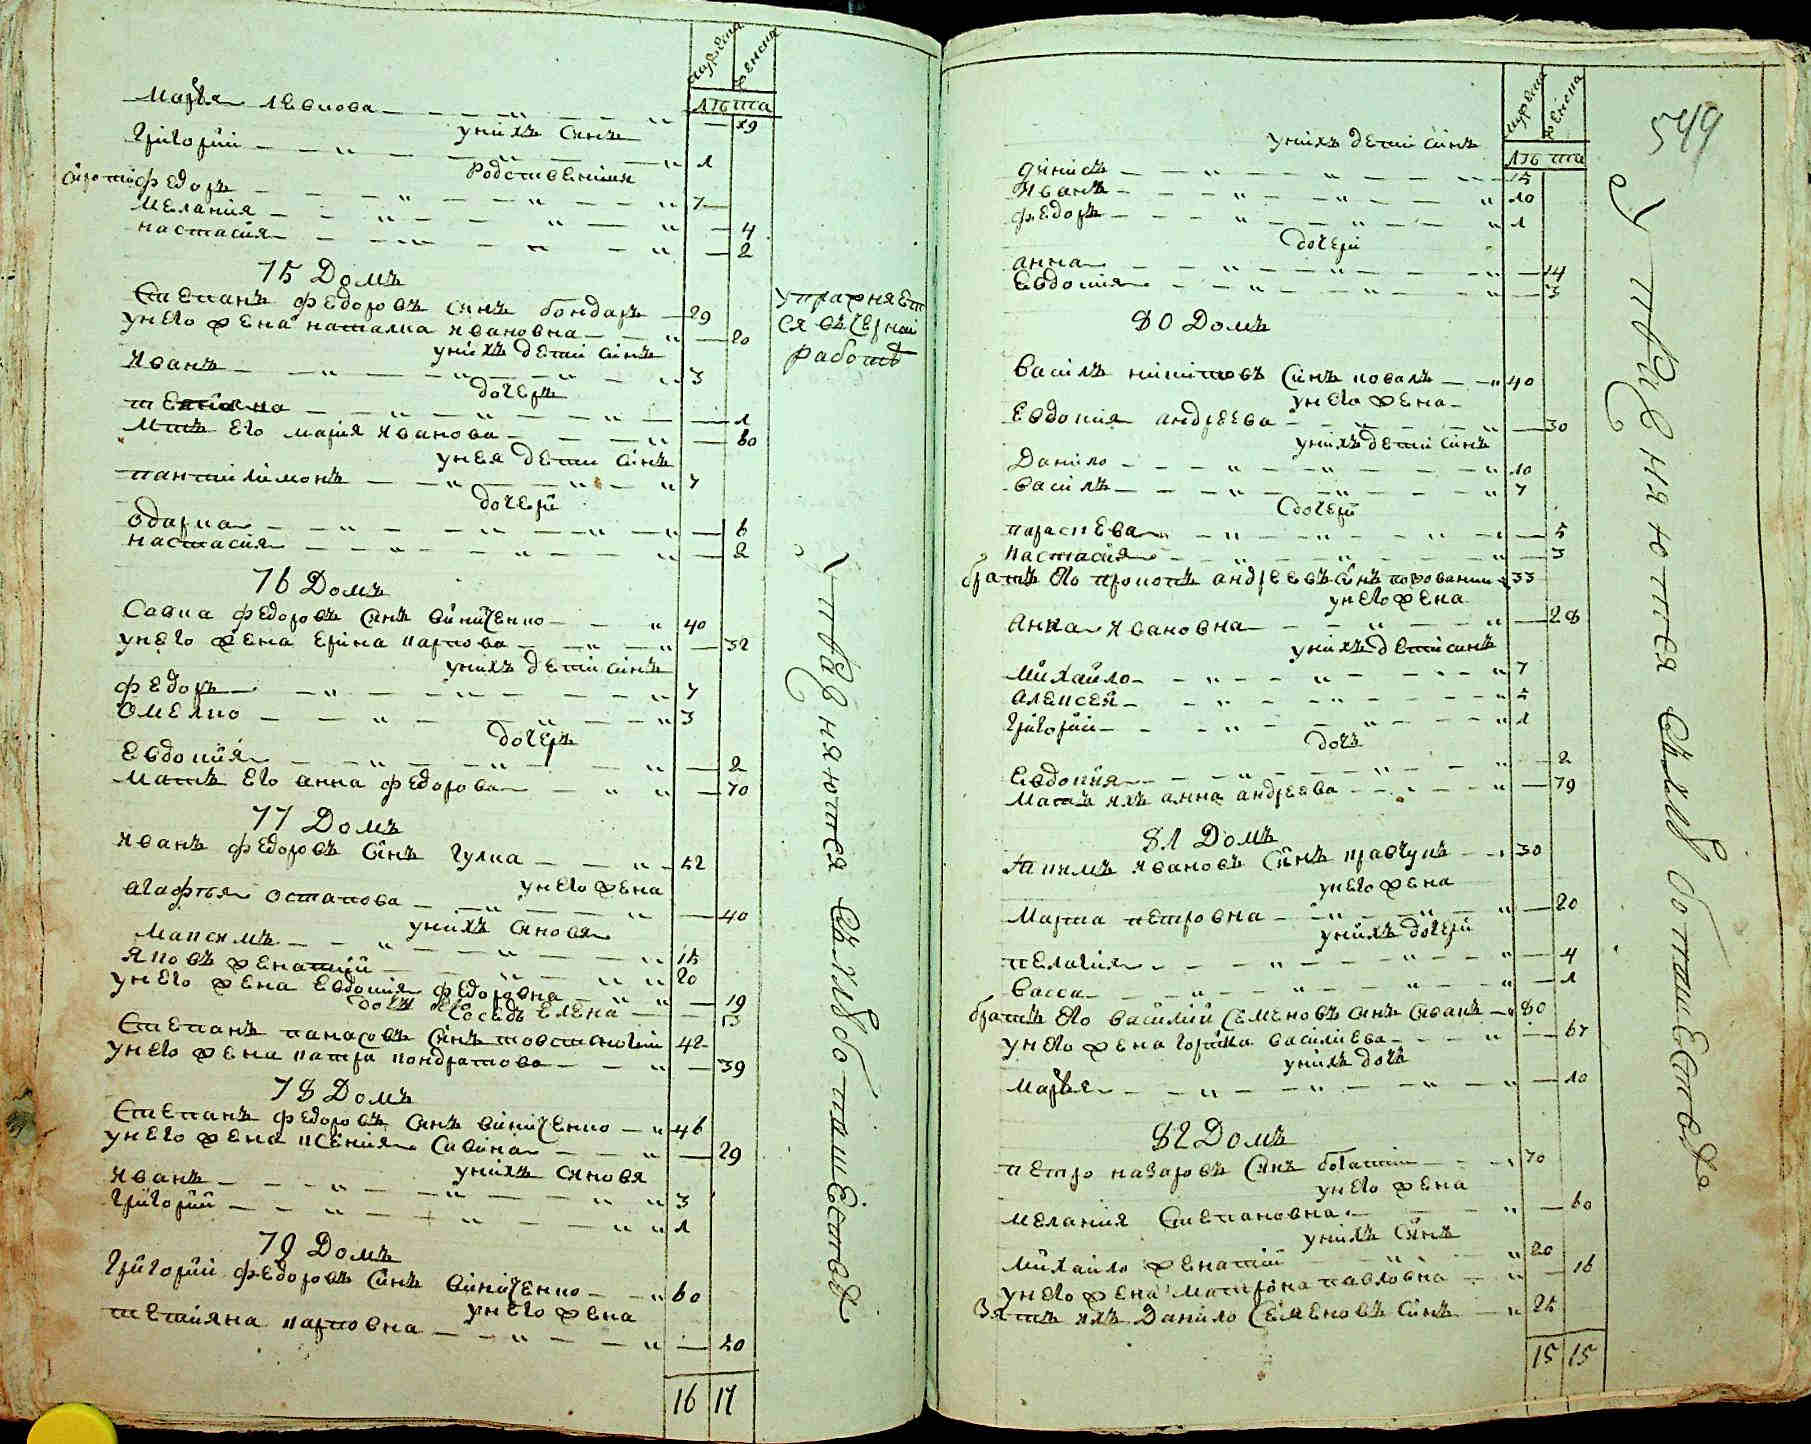 мужеска
женска
лѣта
Марья Левкова 29
унихъ синъ
Григорий 1
Родственики
сироти Федоръ 7
Мелания 4
настасия 2
75 Домъ
Степанъ Федоровъ синъ бондаръ 29
унего жена наталка Ивановна 20
унихъ дети синъ
Иванъ 3
дочеръ
тетияна 1
Мать его мария Иванова 60
унея дети синъ
пантилимонъ 7
дочери
одарка 6
настасия 2
76 Домъ
Савка федоровъ синъ виниченко 40
унего жена ерина карпова 32
унихъ дети синъ
федоръ 7
Омелко 3
дочеръ
Евдокия 2
Мать его анна федорова 70
77 Домъ
Иванъ федоровъ синъ гулка 52
унего жена
агафтья остапова 40
унихъ синовя
Максимъ 15
Яковъ женатий 20
унего жена Евдокия федоровна 19
дочь его
соседъ Елена 13
Степанъ панасовъ синъ товстоногий 42
унего жена катря кондратова 39
78 Домъ
Степанъ федоровъ синъ виниченко 46
унего жена ксения савина 29
унихъ синовя
Иванъ 3
Григорий 1
79 Домъ
Григорий федоровъ синъ виниченко 60
унего жена
тетияна карповна 50
16 17
упражняет
ся въ черной
работѣ
упражняются въ хлѣбопашествѣ
549
мужеска
женска
лѣта
унихъ дети синъ
дениск 15
Иванъ 10
федоръ 1
дочери
анна 14
Евдокия 3
80 Домъ
Василь никитовъ синъ коваль 40
унего жена
Евдокия андреева 30
унихъ дети синъ
Данило 10
василь 7
дочери
параскева 5
настасия 3
братъ его прокопъ андреевъ синъ 33
унего жена
Анна Ивановна 28
унихъ дети синъ
Михайло 7
алексей 5
Григорий 1
дочь
Евдокия 2
Мать ихъ анна андреева 79
81 Домъ
Якимъ Ивановъ синъ кравчукъ 30
унего жена
Марта петровна 20
унихъ дочери
пелагия 4
васса 1
братъ его василий семеновъ синъ 80
унего жена горпина василиева 67
унихъ дочь
Марья 10
82 Домъ
петро назаровъ синъ 70
унего жена
мелания Степановна 60
унихъ синъ
Михайло женатий 20
унего жена матрона павловна 16
Зять ихъ Данило семеновъ синъ 25
15 15
упражняются въ хлѣбопашествѣ